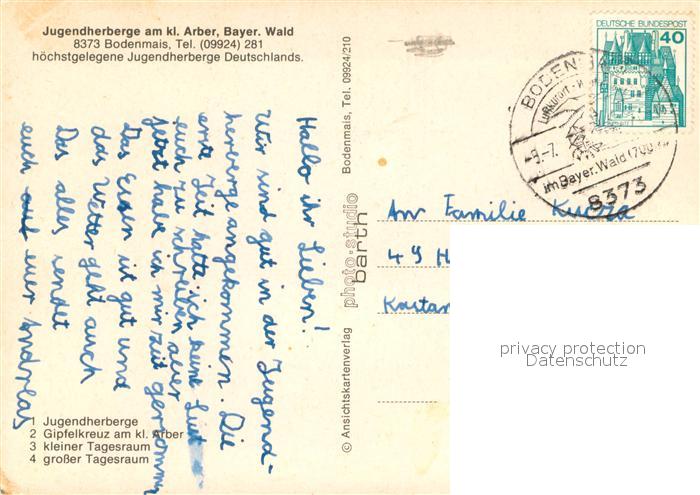 Jugendherberge am kl. Arber, Bayer. Wald
8373 Bodenmais, Tel. (09924) 281
höchstgelegene Jugendherberge Deutschlands.
Hallo ihr Lieben!
Wir sind gut in der Jugend-
herberge angekommen. Die
erste Zeit hatte ich keine Lust
euch zu schreiben aber
jetzt habe ich mir zeit genommen
Das Essen ist gut und
das Wetter geht auch
Das alles sendet
euch auf euer Andreas
1 Jugendherberge
2 Gipfelkreuz am kl. Arber
3 kleiner Tagesraum
4 großer Tagesraum
© Ansichtskartenverlag photo-studio barth Bodenmais, Tel. 09924/210
DEUTSCHE BUNDESPOST
40
BODENMAIS
Luftkurort
-9.-7.
im Bayer. Wald (700
8373
An Familie
49 H
Kastan
privacy protection
Datenschutz